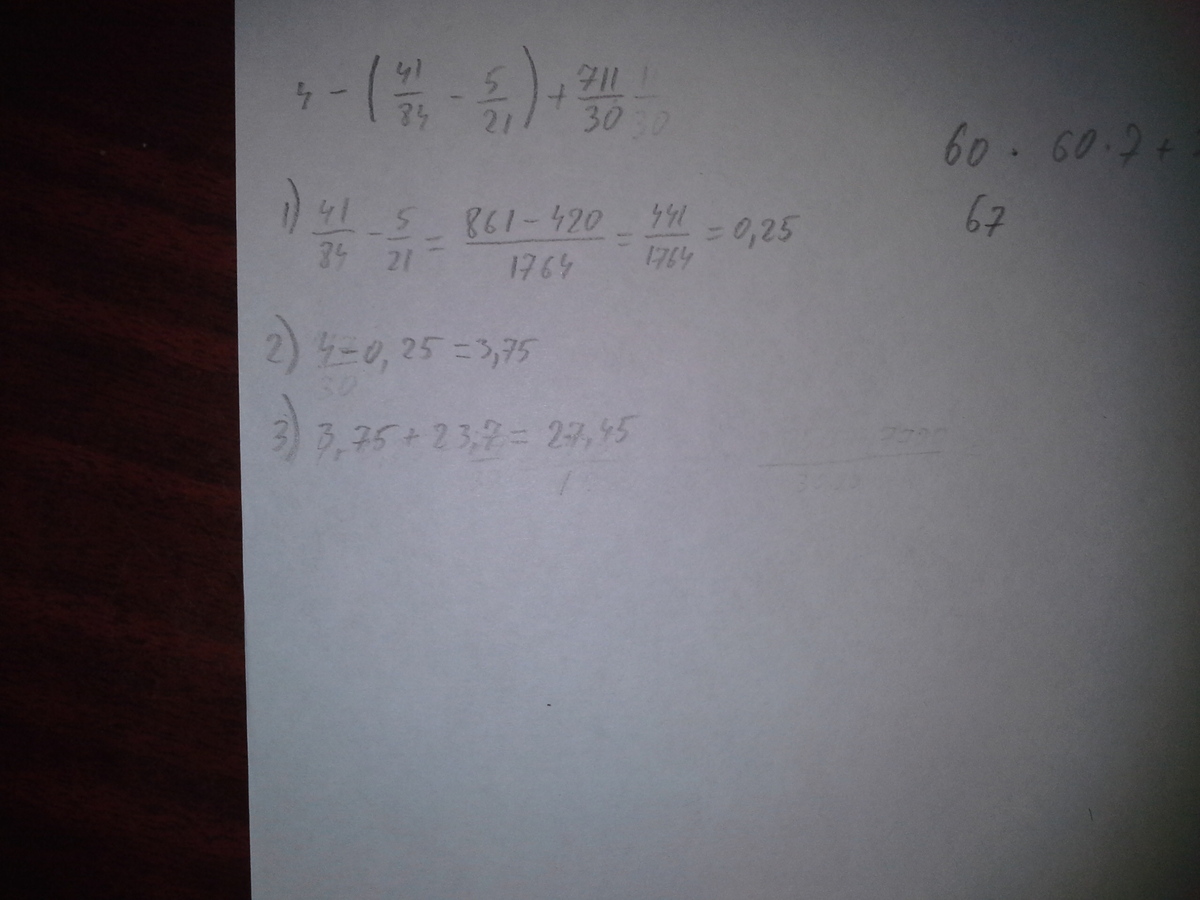 4 - (41/84 - 5/21) + 711/30
60 · 60 · 7 +
67
1) 41/84 - 5/21 = 861 - 420/1764 = 441/1764 = 0,25
2) 4 - 0,25 = 3,75
3) 3,75 + 23,7 = 27,45